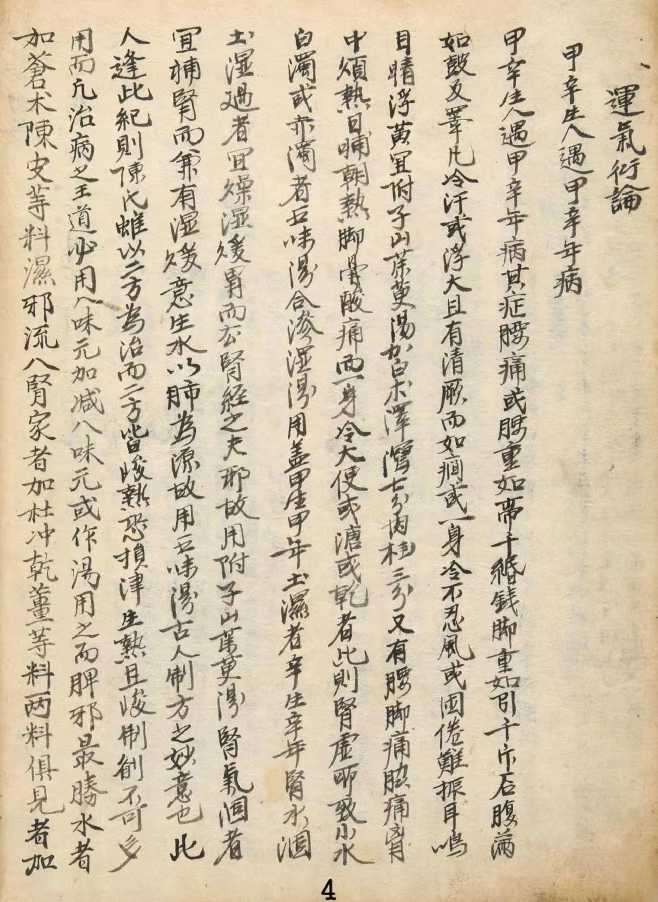 運氣衍論
甲辛生人遇甲辛年病
甲辛生人遇甲辛年病其症腰痛或腰重如帶千緡錢脚重如引千斤石腹滿
如鼓及睪凡冷汗或浮大且有清厥而如癎或一身冷不忍風或困倦難振耳鳴
目睛浮黄宜附子山茱萸湯加白朮澤瀉七分肉桂三分又有腰脚痛脇痛胃
中煩熱日晡朝熱脚骨酸痛而一身冷大便或溏或乾者此則腎虛所致小水
白濁或赤濁者五味湯合滲湿湯用盖甲生甲年土濕者辛生辛年腎水涸
土湿過者宜燥湿煖胃而公腎經之夫邪故用附子山茱萸湯腎氣涸者
宜補腎而兼有湿煖意生水以肺為源故用五味湯古人制方之妙意也此
人逢此紀則陳氏雖以二方為治而二方皆峻熱恐損津生熱且峻制劑不可多
用而凡治病之王道必用八味元加减八味元或作湯用之而脾邪最勝水者
加蒼朮陳皮等料濕邪流入腎家者加杜冲乾薑等料两料俱見者加
4